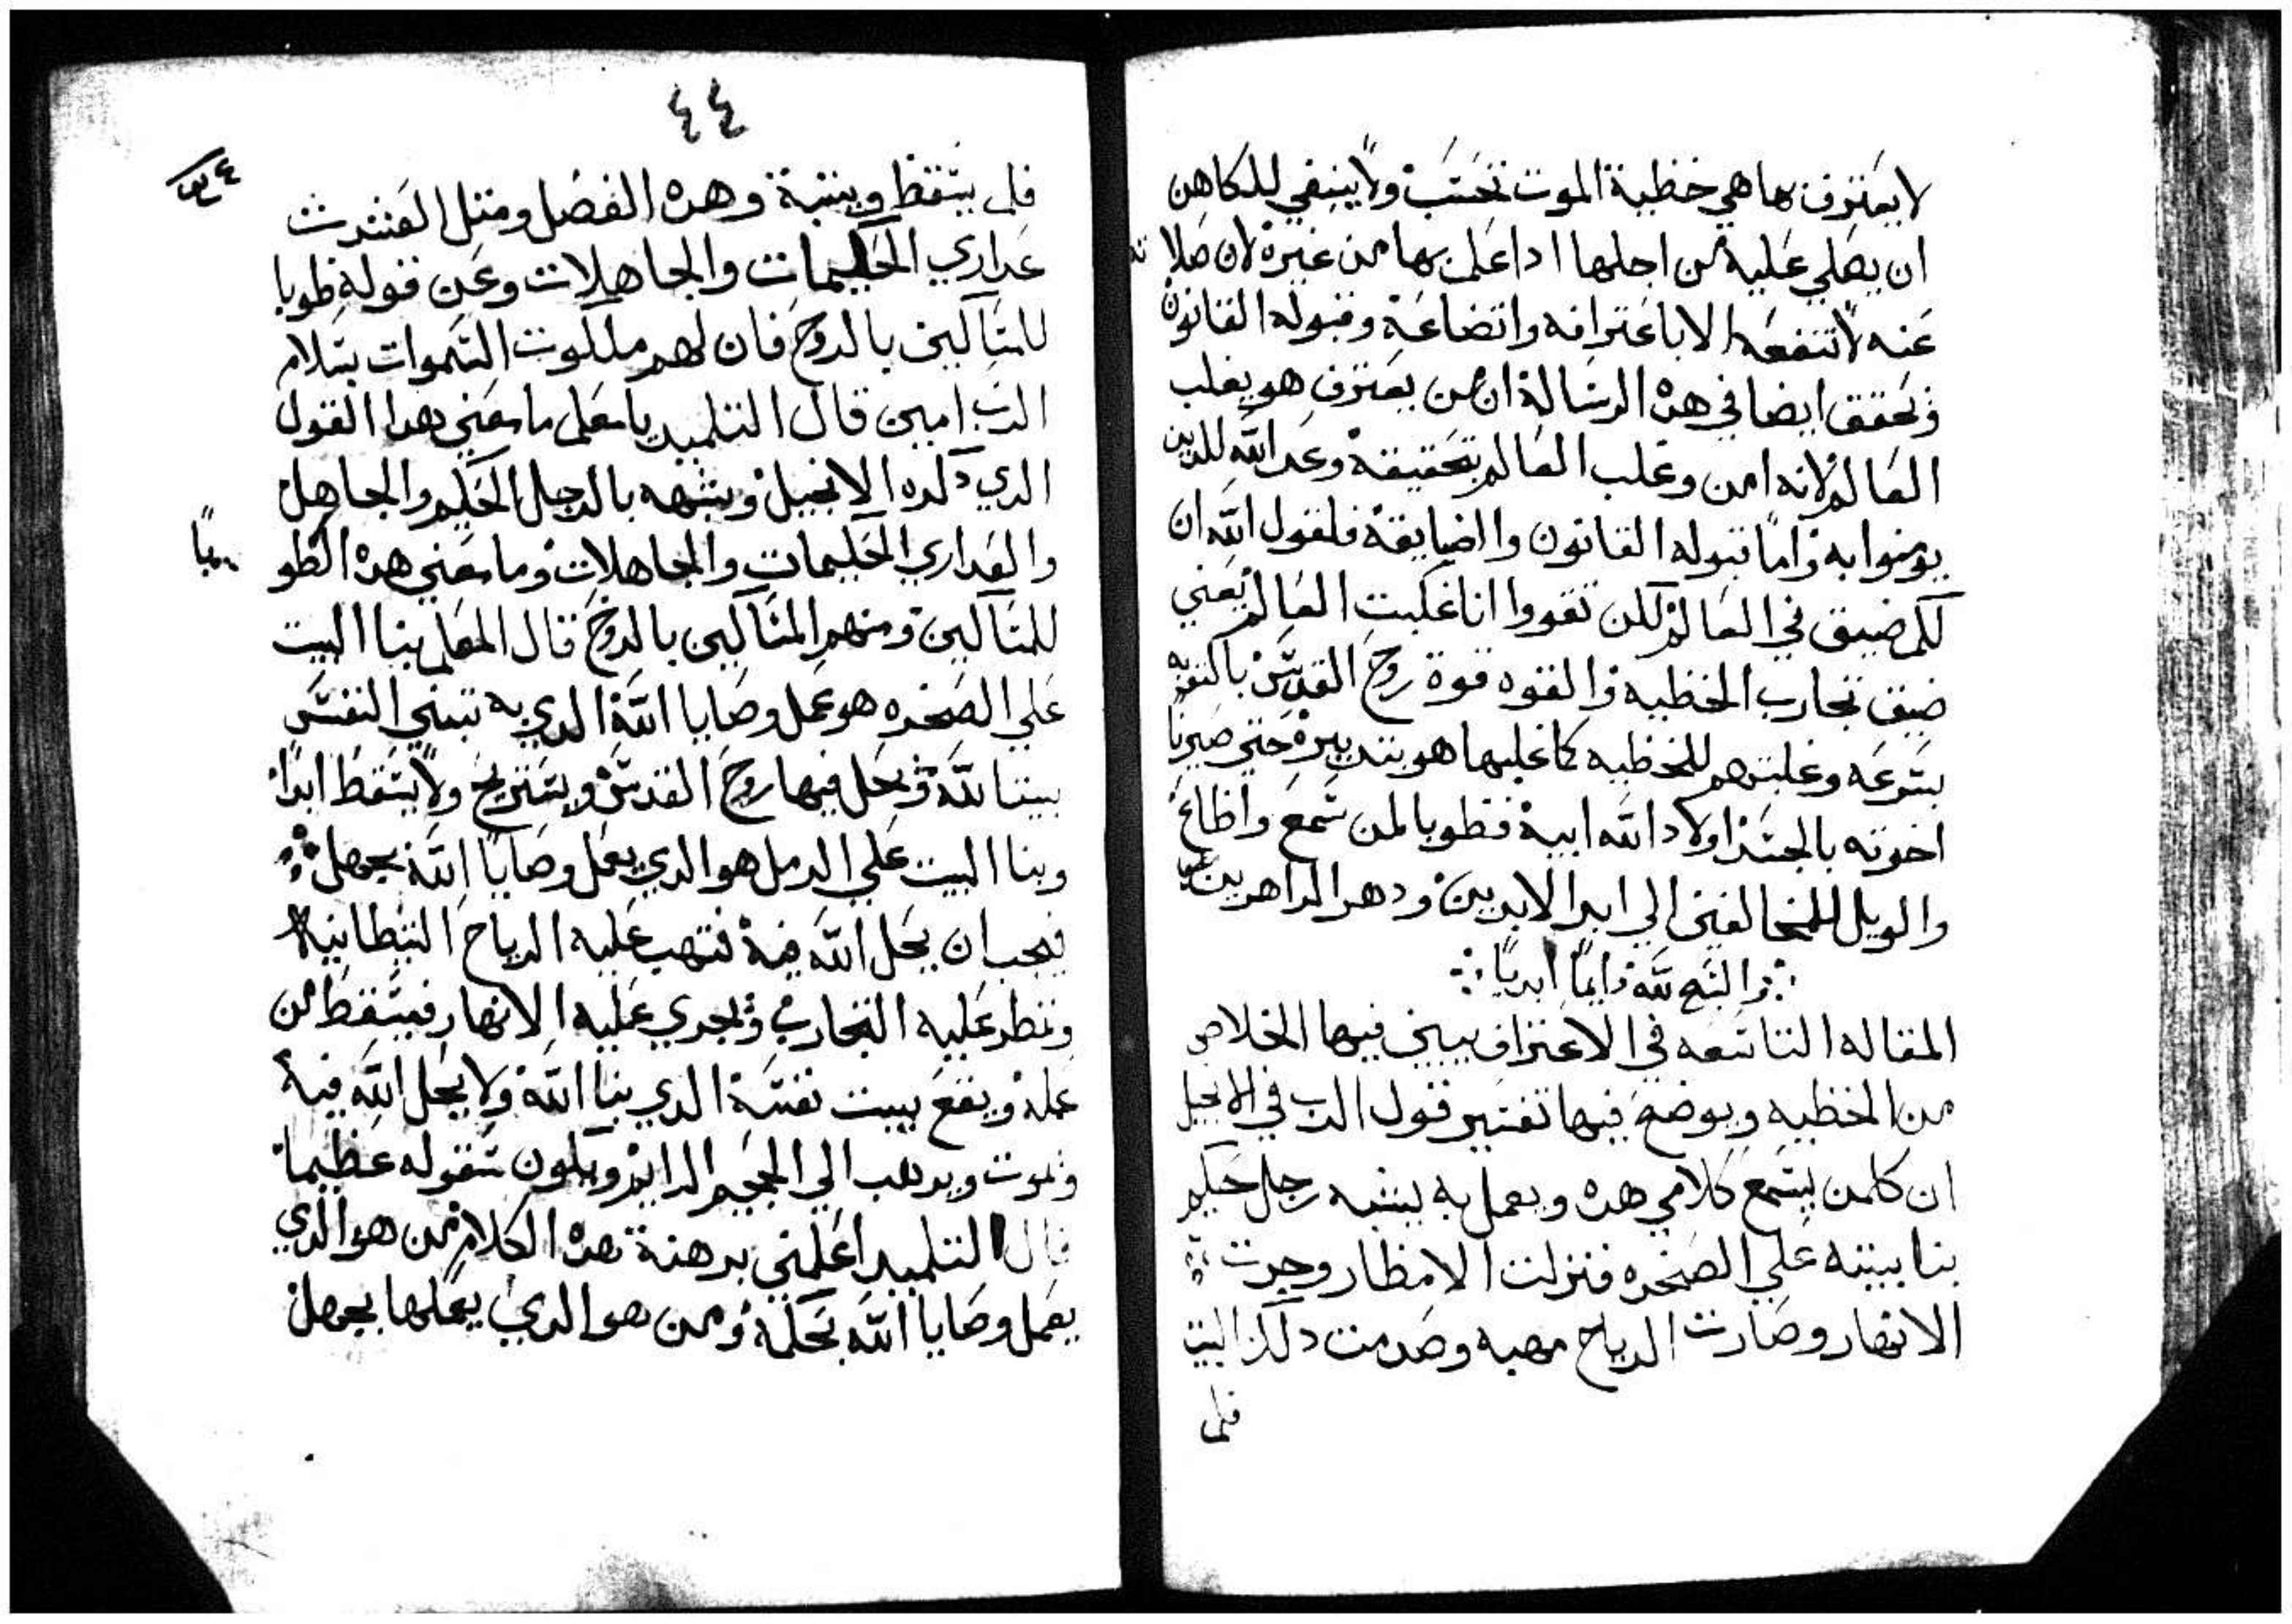 لا يعترف بها هي خطية الموت تحسب ولا ينبغي للكاهن
ان يصلي عليه من اجلها ادا علم بها من غيره لان صلاته
عنه لا تنفعه الا باعترافه واتضاعه وقبوله القانون
وتحقق ايضا في هده الرساله ان من يعترف هو يغلب
العالم لانه امن وغلب العالم بتحقيقه وعد الله للدين
يومنوا به واما قبوله القانون والضايقه فلقول الله ان
لكم ضيق في العالم لكن تقووا انا غلبت العالم يعني
ضيق تجارب الخطيه والقوه قوة روح القدس بالتوبه
بسرعه وغلبتهم للخطيه كما غلبها هو بتدبيره حتي صيرنا
اخوته بالجسد اولاد الله ابيه فطوبا لمن سمع واطاع
والويل للمخالفين الي ابد الابدين ودهر الداهرين
والسبح لله دايما ابديا
المقاله التاسعه في الاعتراف يبين فيها الخلاص
من الخطيه ويوضح فيها تفسير قول الرب في الانجيل
ان كلمن يسمع كلامي هده ويعمل به يشبه رجل حكيم
بنا بيته علي الصخره فنزلت الامطار وجرت
الانهار وصارت الرياح مهبه وصدمت دلك البيت
فلم
٤٤
فلم يسقط وبينبه وهده الفصل ومتل العشرت
عداري الحكيمات والجاهلات وعن قوله طوبا
للمساكين بالروح فان لهم ملكوت السموات بسلام
الرب امين قال التلميد يا معلم ما معني هدا القول
الدي دكره الانجيل وشبهه بالرجل الحكيم والجاهل
والعداري الحكيمات والجاهلات وما معني هده الطوبا
للمساكين ومنهم المساكين بالروح قال المعلم بنا البيت
علي الصخره هو عمل وصايا الله الدي به تبتني النفس
بيتا لله ويحل فيها روح القدس ويستريح ولا يسقط ابدا
وبنا البيت علي الرمل هو الدي يعمل وصايا الله بجهل
فيجب ان يحل الله فيه فتهب عليه الرياح الشيطانيه
وتمطر عليه التجارب وتجري عليه الانهار فيسقط من
عمله ويقع بيت نفسه الدي بنا الله ولا يحل الله فيه
ويموت ويدهب الي الجحيم الدايم ويكون سقوطه عظيما
قال التلميد اعلمني برهنة هده الكلام من هو الدي
يعمل وصايا الله بحكمه ومن هو الدي يعملها بجهل